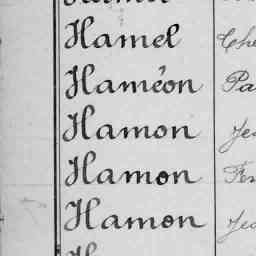 Hamel Che
Haméon Pa
Hamon Jea
Hamon Fr
Hamon Jea